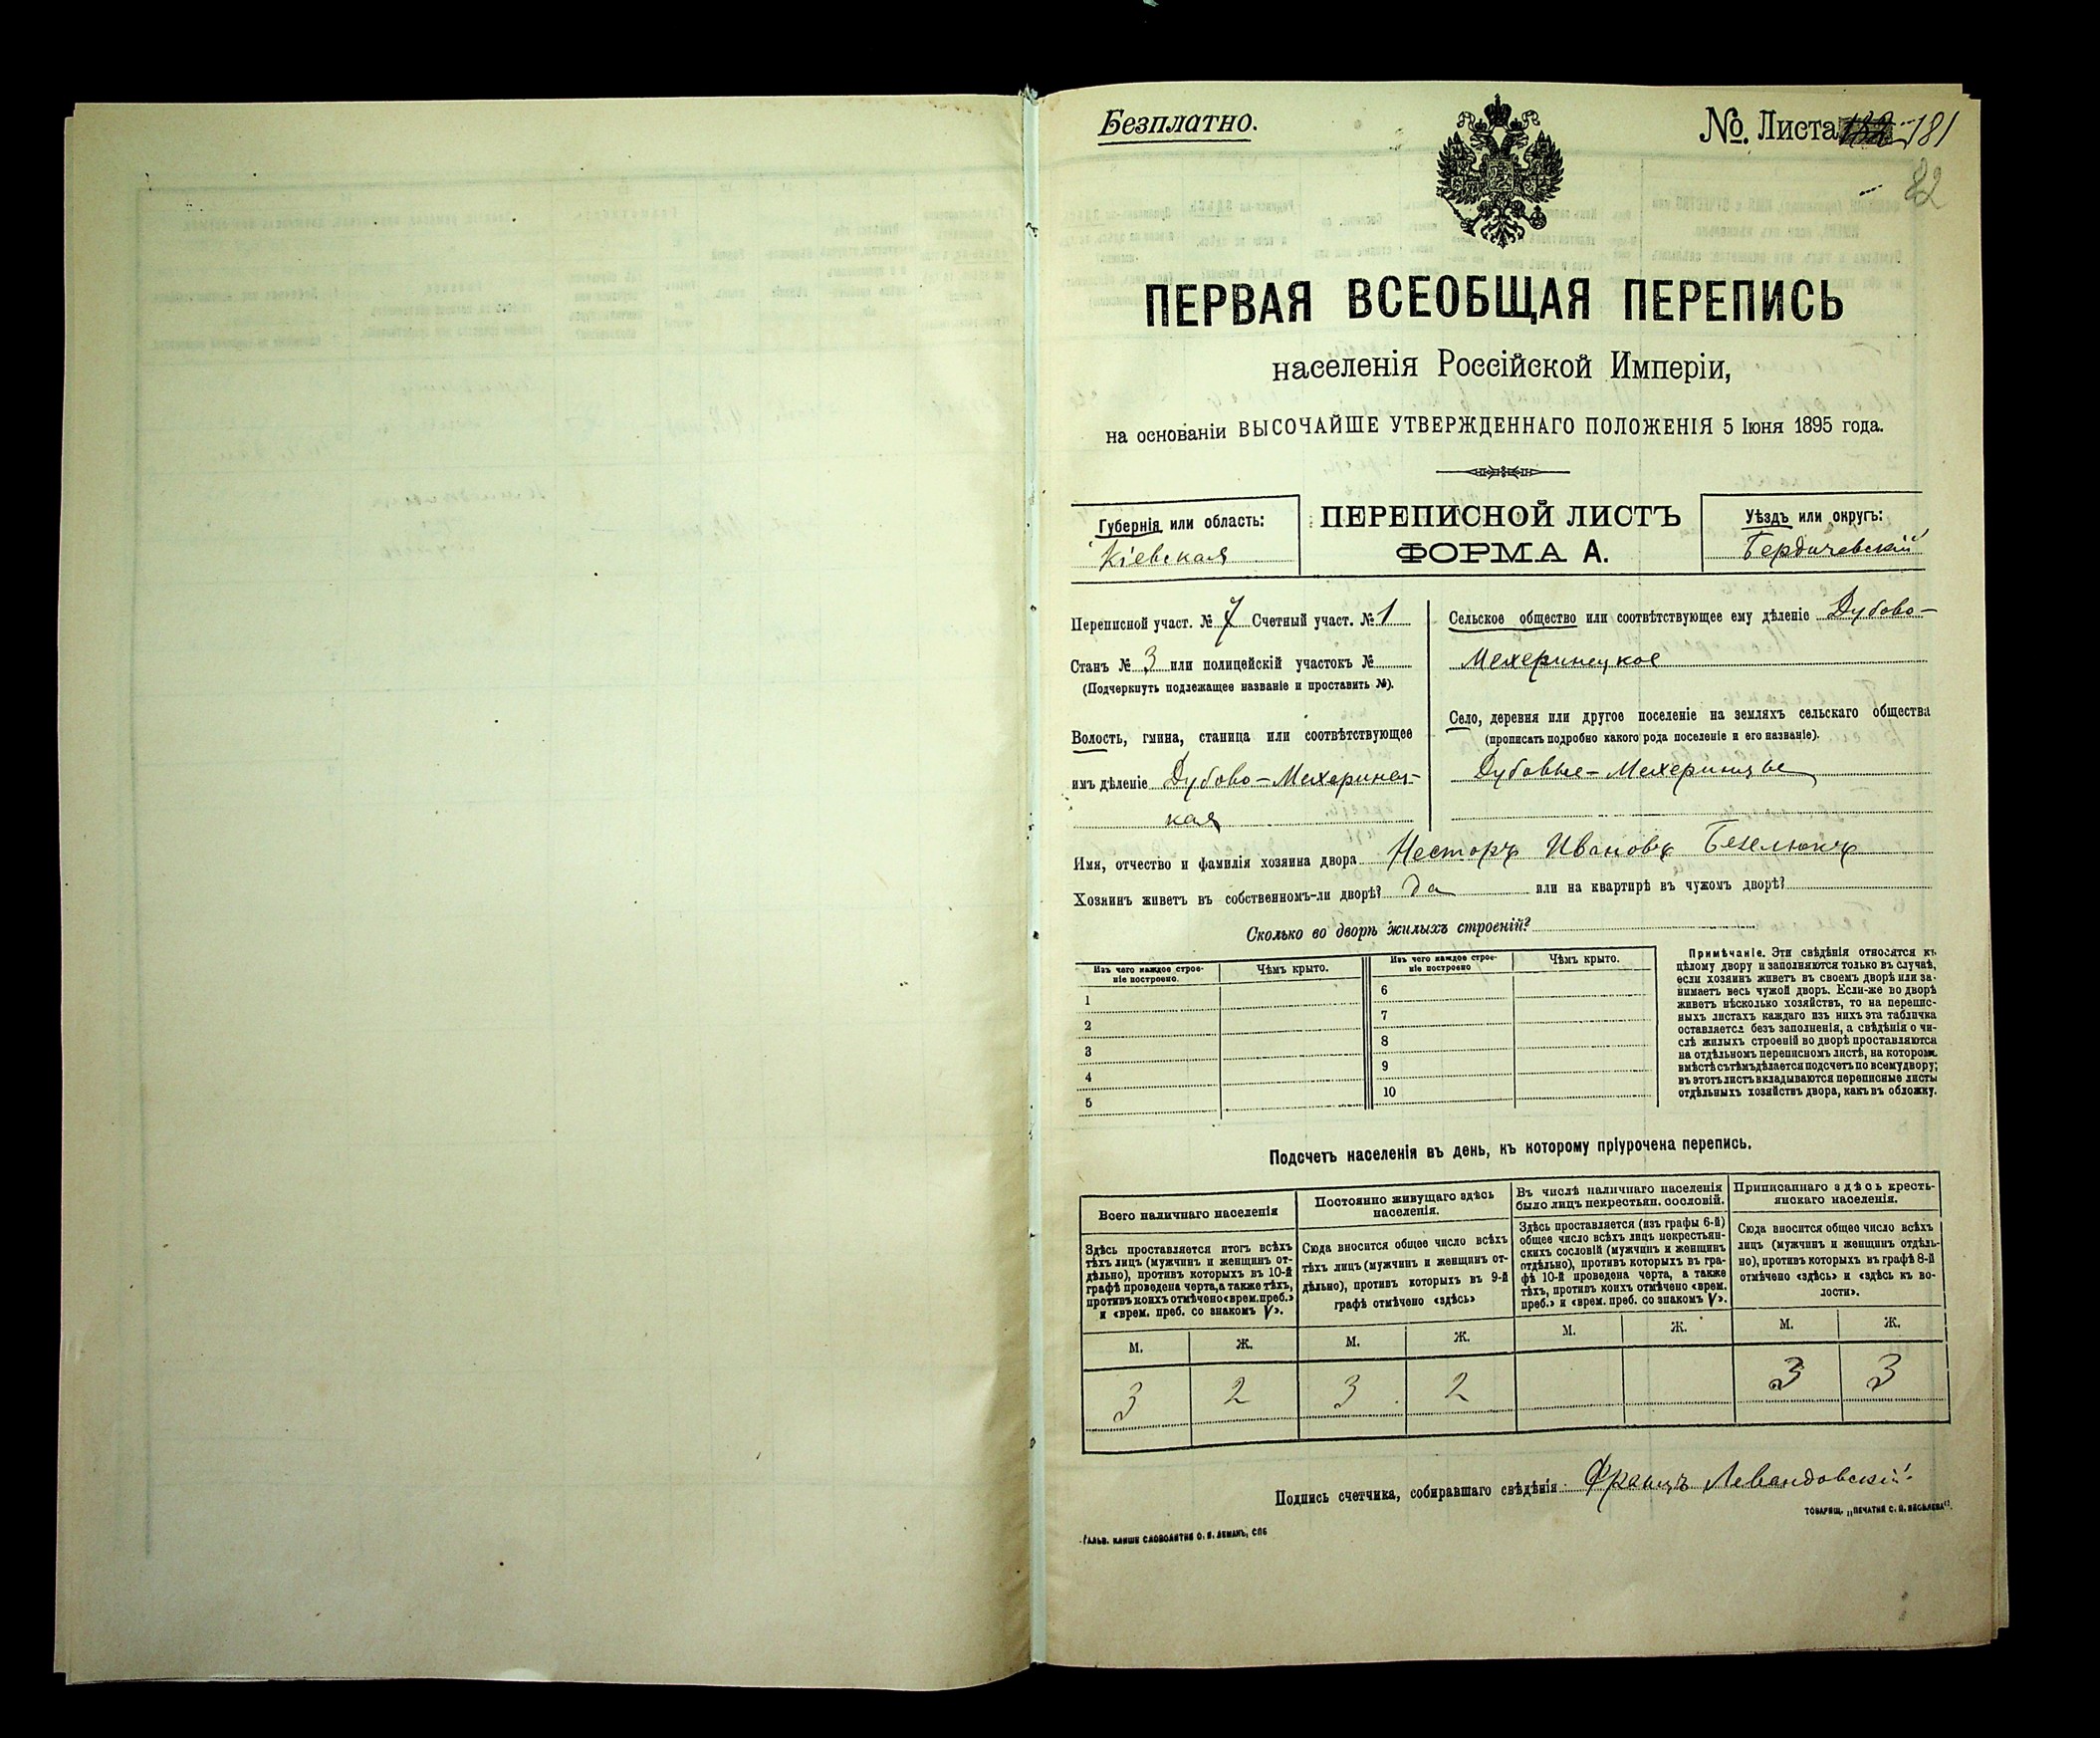 Безплатно.
№ Листа 181
82
ПЕРВАЯ ВСЕОБЩАЯ ПЕРЕПИСЬ
населенія Россійской Имперіи,
на основаніи ВЫСОЧАЙШЕ УТВЕРЖДЕННАГО ПОЛОЖЕНІЯ 5 Іюня 1895 года.
Губернія или область:
Кіевская
ПЕРЕПИСНОЙ ЛИСТЪ
ФОРМА А.
Уѣздъ или округъ:
Бердичевскій
Переписной участ. № 7 Счетный участ. № 1
Станъ № 3 или полицейскій участокъ №
(Подчеркнуть подлежащее названіе и проставить №).
Волость, гмина, станица или соотвѣтствующее
имъ дѣленіе Дубово-Мехеринец-
кая
Сельское общество или соотвѣтствующее ему дѣленіе Дубово-
Мехеринецкое
Село, деревня или другое поселеніе на земляхъ сельскаго общества
(прописать подробно какого рода поселеніе и его названіе).
Дубовые-Мехеринцы
Имя, отчество и фамилія хозяина двора Несторъ Ивановъ Безелюкъ
Хозяинъ живетъ въ собственномъ-ли дворѣ? да или на квартирѣ въ чужомъ дворѣ?
Сколько во дворѣ жилыхъ строеній?
Изъ чего каждое строе-
ніе построено.
Чѣмъ крыто.
1
2
3
4
5
Изъ чего каждое строе-
ніе построено
Чѣмъ крыто.
6
7
8
9
10
Примѣчаніе. Эти свѣдѣнія относятся къ
цѣлому двору и заполняются только въ случаѣ,
если хозяинъ живетъ въ своемъ дворѣ или за-
нимаетъ весь чужой дворъ. Если-же во дворѣ
живетъ нѣсколько хозяйствъ, то на перепис-
ныхъ листахъ каждаго изъ нихъ эта табличка
оставляется безъ заполненія, а свѣдѣнія о чи-
слѣ жилыхъ строеній во дворѣ проставляются
на отдѣльномъ переписномъ листѣ, на которомъ
вмѣстѣ съ тѣмъ дѣлается подсчетъ по всему двору;
въ этотъ листъ вкладываются переписные листы
отдѣльныхъ хозяйствъ двора, какъ въ обложку.
Подсчетъ населенія въ день, къ которому пріурочена перепись.
Всего наличнаго населенія
Здѣсь проставляется итогъ всѣхъ
тѣхъ лицъ (мужчинъ и женщинъ от-
дѣльно), противъ которыхъ въ 10-й
графѣ проведена черта, а также тѣхъ,
противъ коихъ отмѣчено «врем. преб.»
и «врем. преб. со знакомъ V».
М. Ж.
3 2
Постоянно живущаго здѣсь
населенія.
Сюда вносится общее число всѣхъ
тѣхъ лицъ (мужчинъ и женщинъ от-
дѣльно), противъ которыхъ въ 9-й
графѣ отмѣчено «здѣсь»
М. Ж.
3 2
Въ числѣ наличнаго населенія
было лицъ некрестьян. сословій.
Здѣсь проставляется (изъ графы 6-й)
общее число всѣхъ лицъ некрестьян-
скихъ сословій (мужчинъ и женщинъ
отдѣльно), противъ которыхъ въ гра-
фѣ 10-й проведена черта, а также
тѣхъ, противъ коихъ отмѣчено «врем.
преб.» и «врем. преб. со знакомъ V».
М. Ж.
Приписаннаго здѣсь кресть-
янскаго населенія.
Сюда вносится общее число всѣхъ
лицъ (мужчинъ и женщинъ отдѣль-
но), противъ которыхъ въ графѣ 8-й
отмѣчено «здѣсь» и «здѣсь къ во-
лости».
М. Ж.
3 3
Подпись счетчика, собиравшаго свѣдѣнія Францъ Левандовскій
ТОВАРИЩ. „ПЕЧАТНЯ С. П. ЯКОВЛЕВА".
ГАЛЬВ. КЛИШЕ СЛОВОЛИТНИ О. И. ЛЕМАНЪ, СПБ